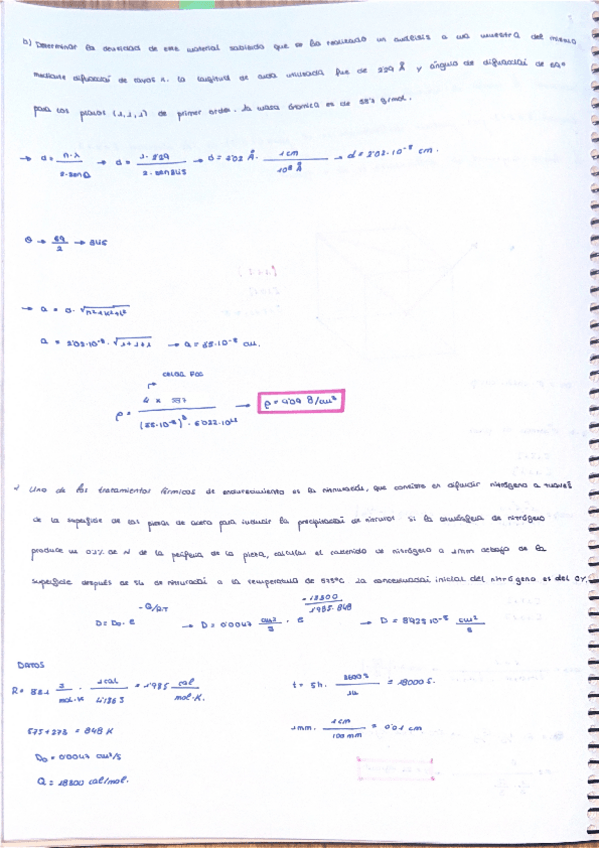 b) Determinar la densidad de este material sabiendo que se ha realizado un análisis a una muestra del mismo
mediante difracción de rayos x. La longitud de onda utilizada fue de 2'29 Å y ángulo de difracción de 69°
para los planos (1,1,1) de primer orden. La masa atómica es de
→ d = n·λ / 2·senθ → d = 1·2'29 / 2· → d = 2'02 Å · 1cm / 10⁸ Å → d = 2'02·10⁻⁸ cm.
θ → 69/2 → 34'5
→ a = d·√h²+k²+l²
a = 2'02·10⁻⁸·√1+1+1 → a = 3'5·10⁻⁸ cm.
celda FCC
ρ = 4 x / (3'5·10⁻⁸)³ · 6'022·10²³ → ρ = g/cm³
Uno de los tratamientos térmicos de endurecimiento es la nitruración, que consiste en difundir nitrógeno a través
de la superficie de las piezas de acero para inducir la precipitación de nitruros si la atmósfera de nitrógeno
produce un 0'2% de N de la periferia de la pieza, calcular el contenido de nitrógeno a 1mm debajo de la
superficie después de 5h de nitruración a la temperatura de 575°C la concentración inicial del nitrógeno es del 0%.
D = D₀·e^-Q/RT → D = 0'0047 cm²/s · e^-18300/1'985·848 → D = 8'92 10⁻⁸ cm²/s
DATOS
R = 8'31 J/mol·K · 1cal/4'186 J = 1'985 cal/mol·K. t = 5h. 3600s/1h = 18000 s.
575+273 = 848 K 1mm. 1cm/100mm = 0'01 cm
D₀ = 0'0047 cm²/s
Q = 18300 cal/mol.